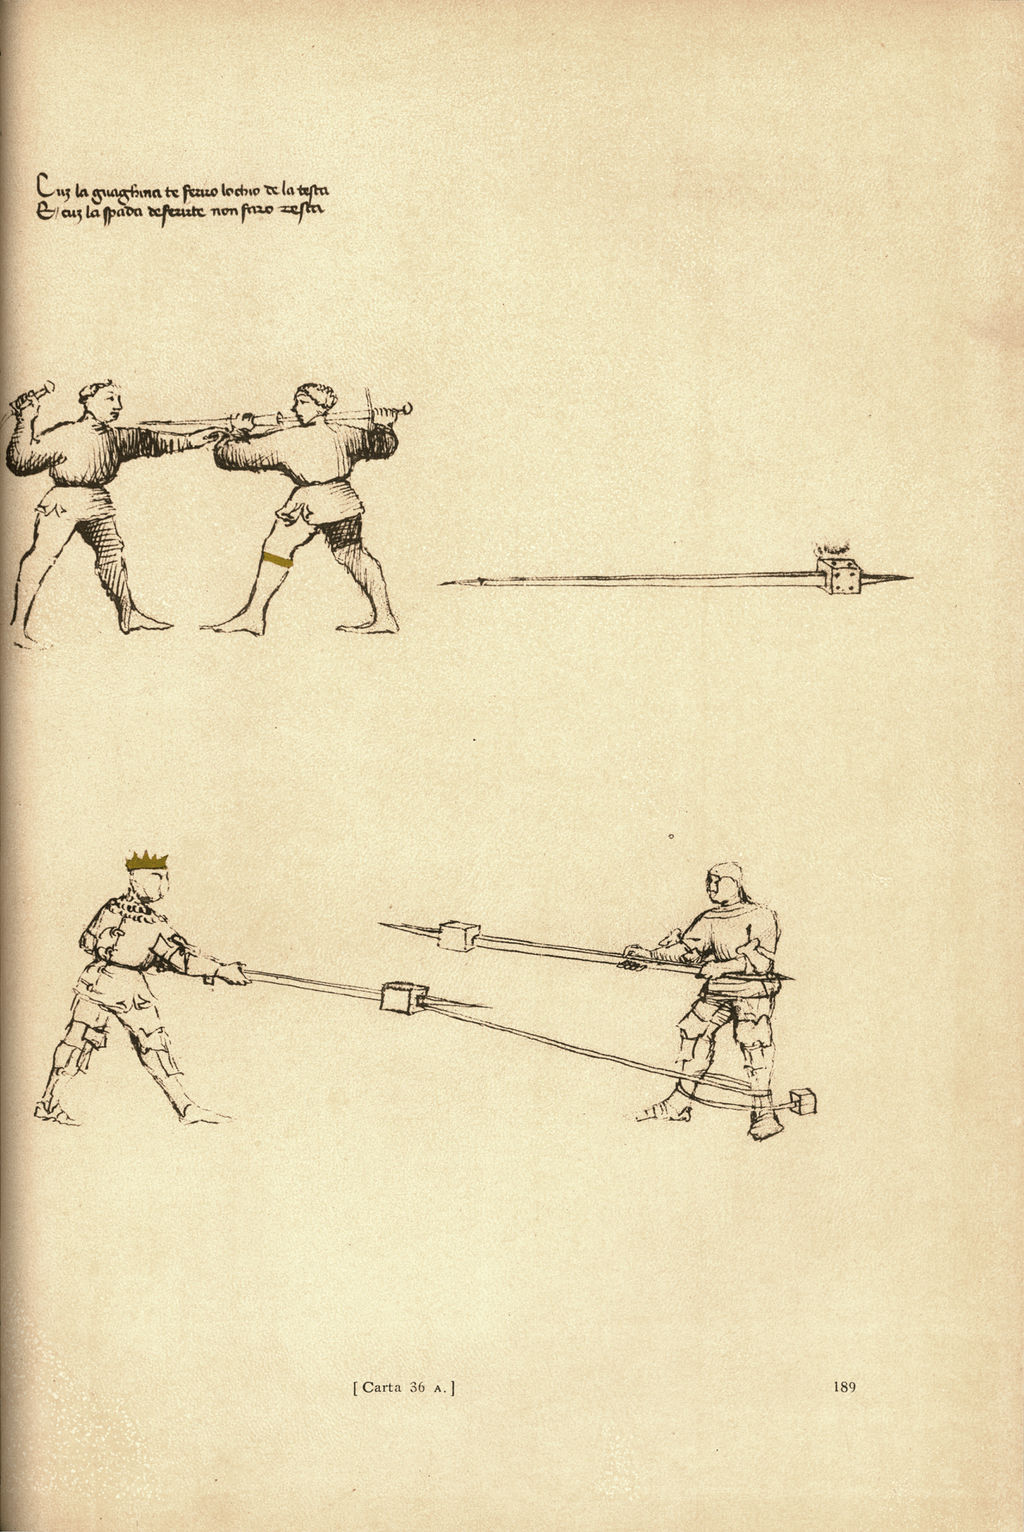 Cuz la guaghina te fierro lochio de la testa
E cuz la spada deferirte non faro resta
[ Carta 36 A. ]
189